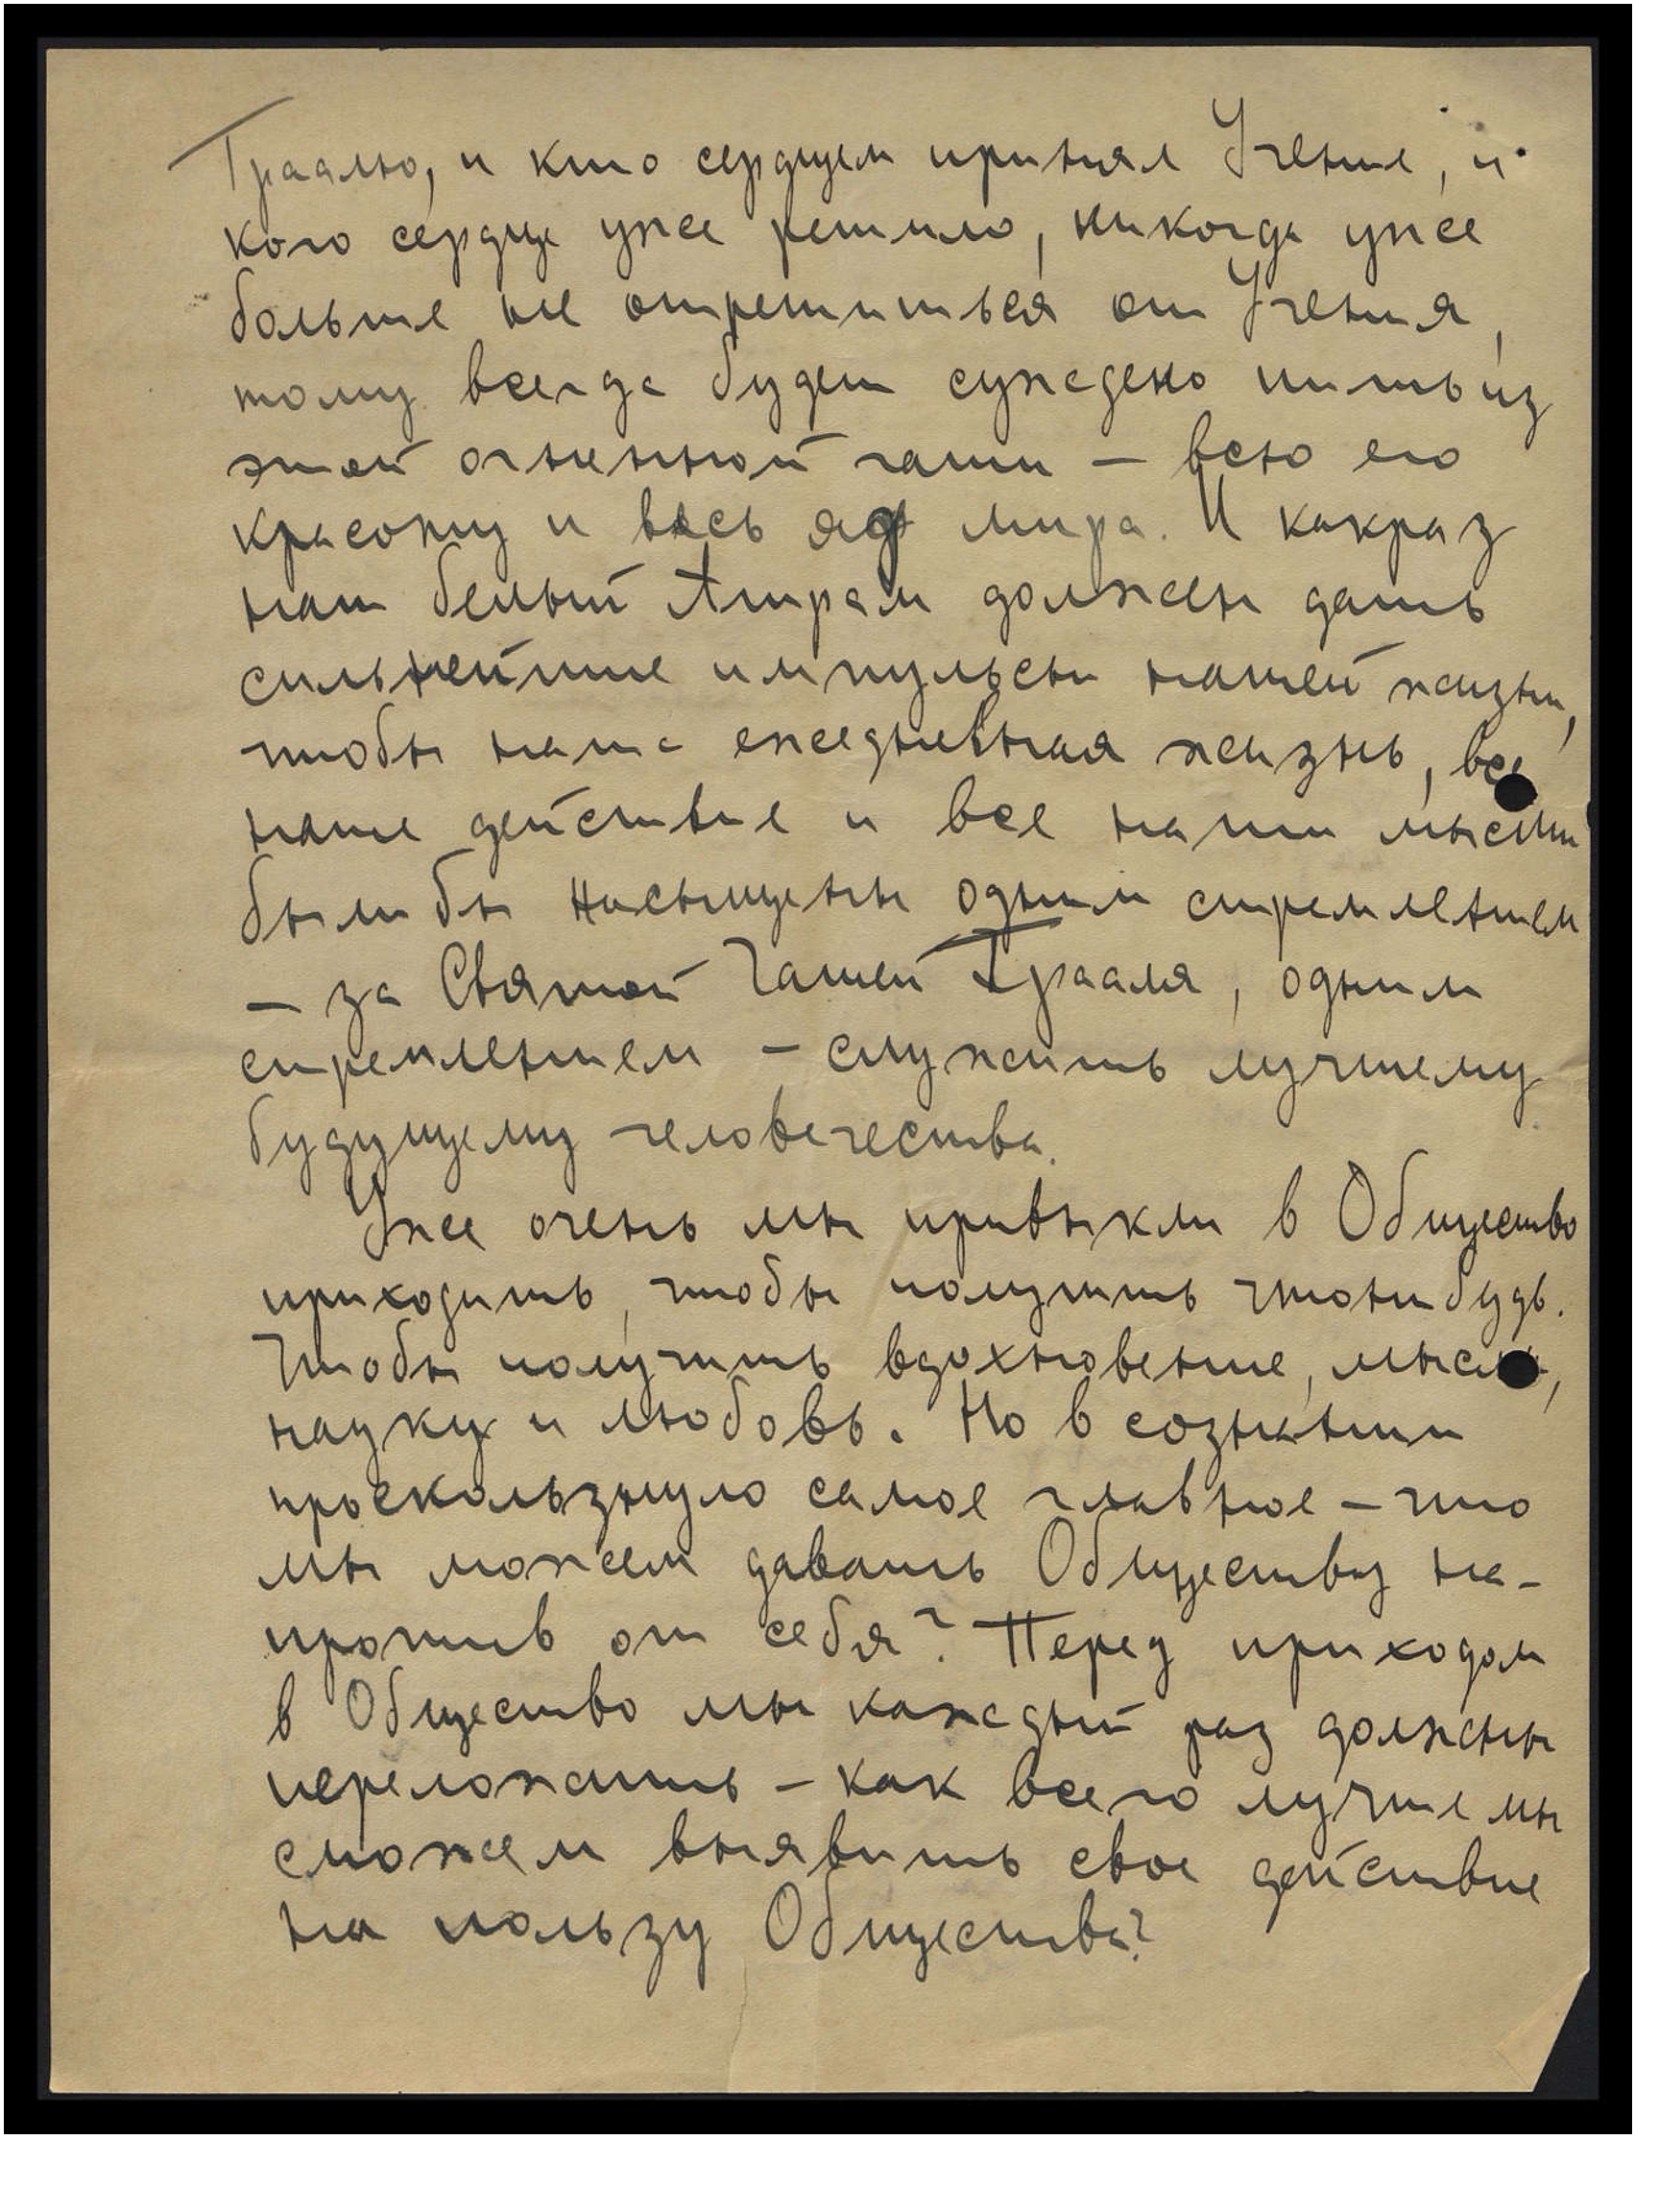 Граалю, и кто сердцем принял Учение, и
кого сердце уже решило, никогда уже
больше не отрешиться от Учения,
тому всегда будет суждено пить из
этой огненной чаши — всю его
красоту и весь яд мира. И какраз
наш белый Ашрам должен дать
сильнейшие импульсы нашей жизни,
чтобы наша ежедневная жизнь, все
наше действие и все наши мысли
были бы насыщены одним стремлением
— за Святой Чашей Грааля, одним
стремлением — служить лучшему
будущему человечества.
Уже очень мы привыкли в Общество
приходить, чтобы получить чтонибудь.
Чтобы получить вдохновение, мысль,
науку и любовь. Но в сознании
проскользнуло самое главное — что
мы можем давать Обществу на-
против от себя? Перед приходом
в Общество мы каждый раз должны
переложить — как всего лучше мы
сможем выявить свое действие
на пользу Общества?